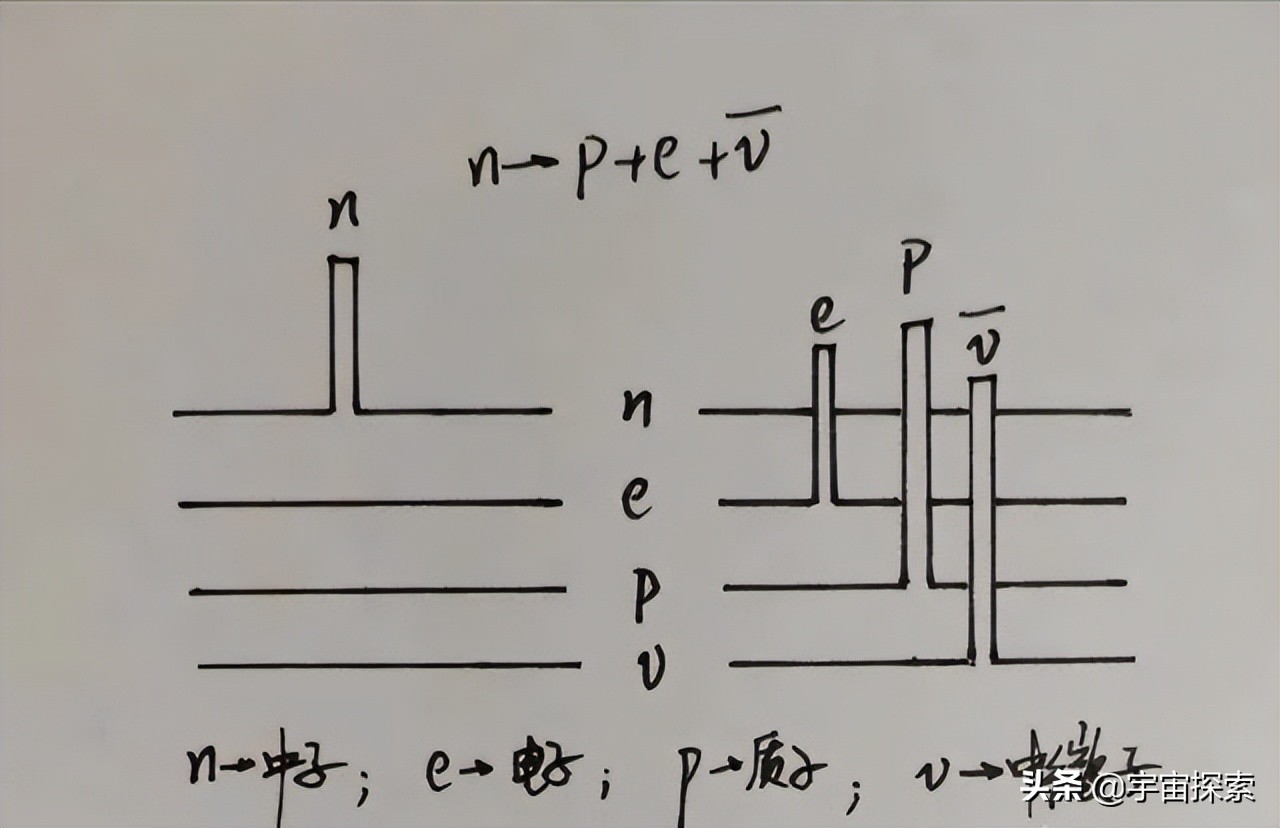 n→p+e+ν̅
n
p
e
ν̅
n
e
p
ν
n→中子; e→电子; p→质子; ν→中微子
头条@宇宙探索